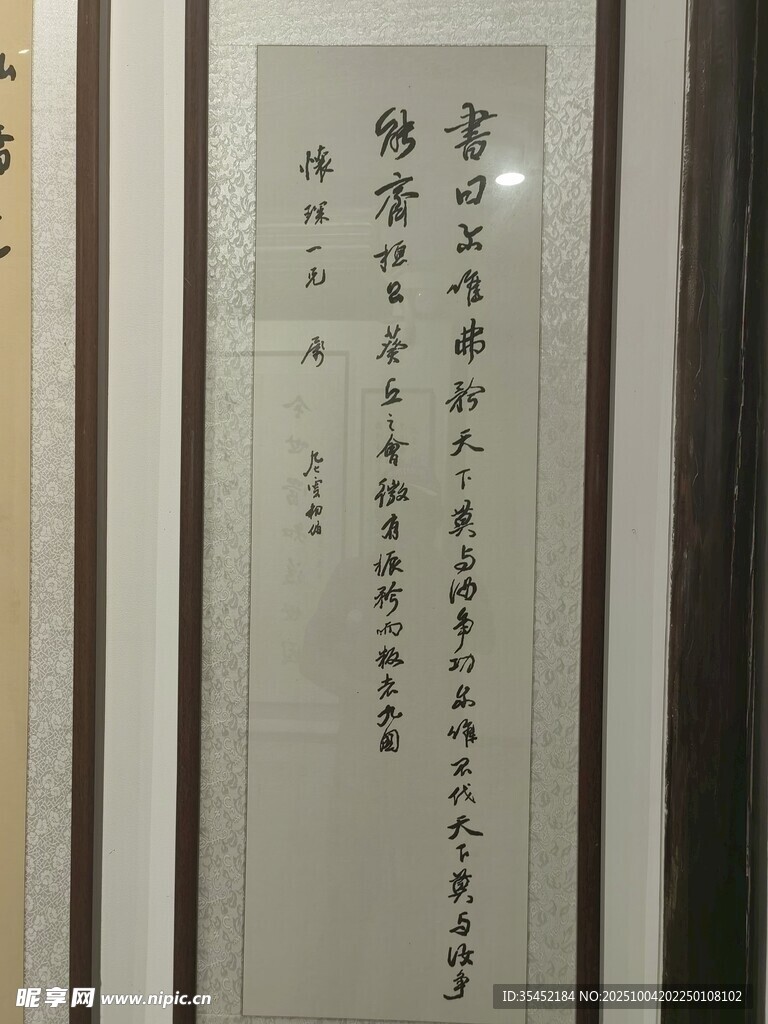 書曰尔唯弗矜天下莫与汝争功尔唯不伐天下莫与汝争
能齊桓公葵丘之會微有振矜而叛者九國
懷琛一兄 屬
雲相伯
昵享网 www.nipic.cn
ID:35452184 NO:20251004202250108102